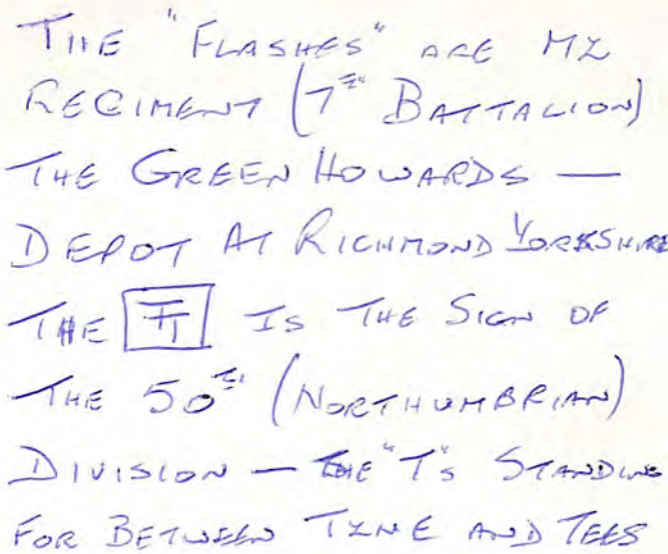 THE "FLASHES" ARE MY
REGIMENT (7TH BATTALION)
THE GREEN HOWARDS —
DEPOT AT RICHMOND YORKSHIRE
THE TT IS THE SIGN OF
THE 50TH (NORTHUMBRIAN)
DIVISION — THE "T"S STANDING
FOR BETWEEN TYNE AND TEES